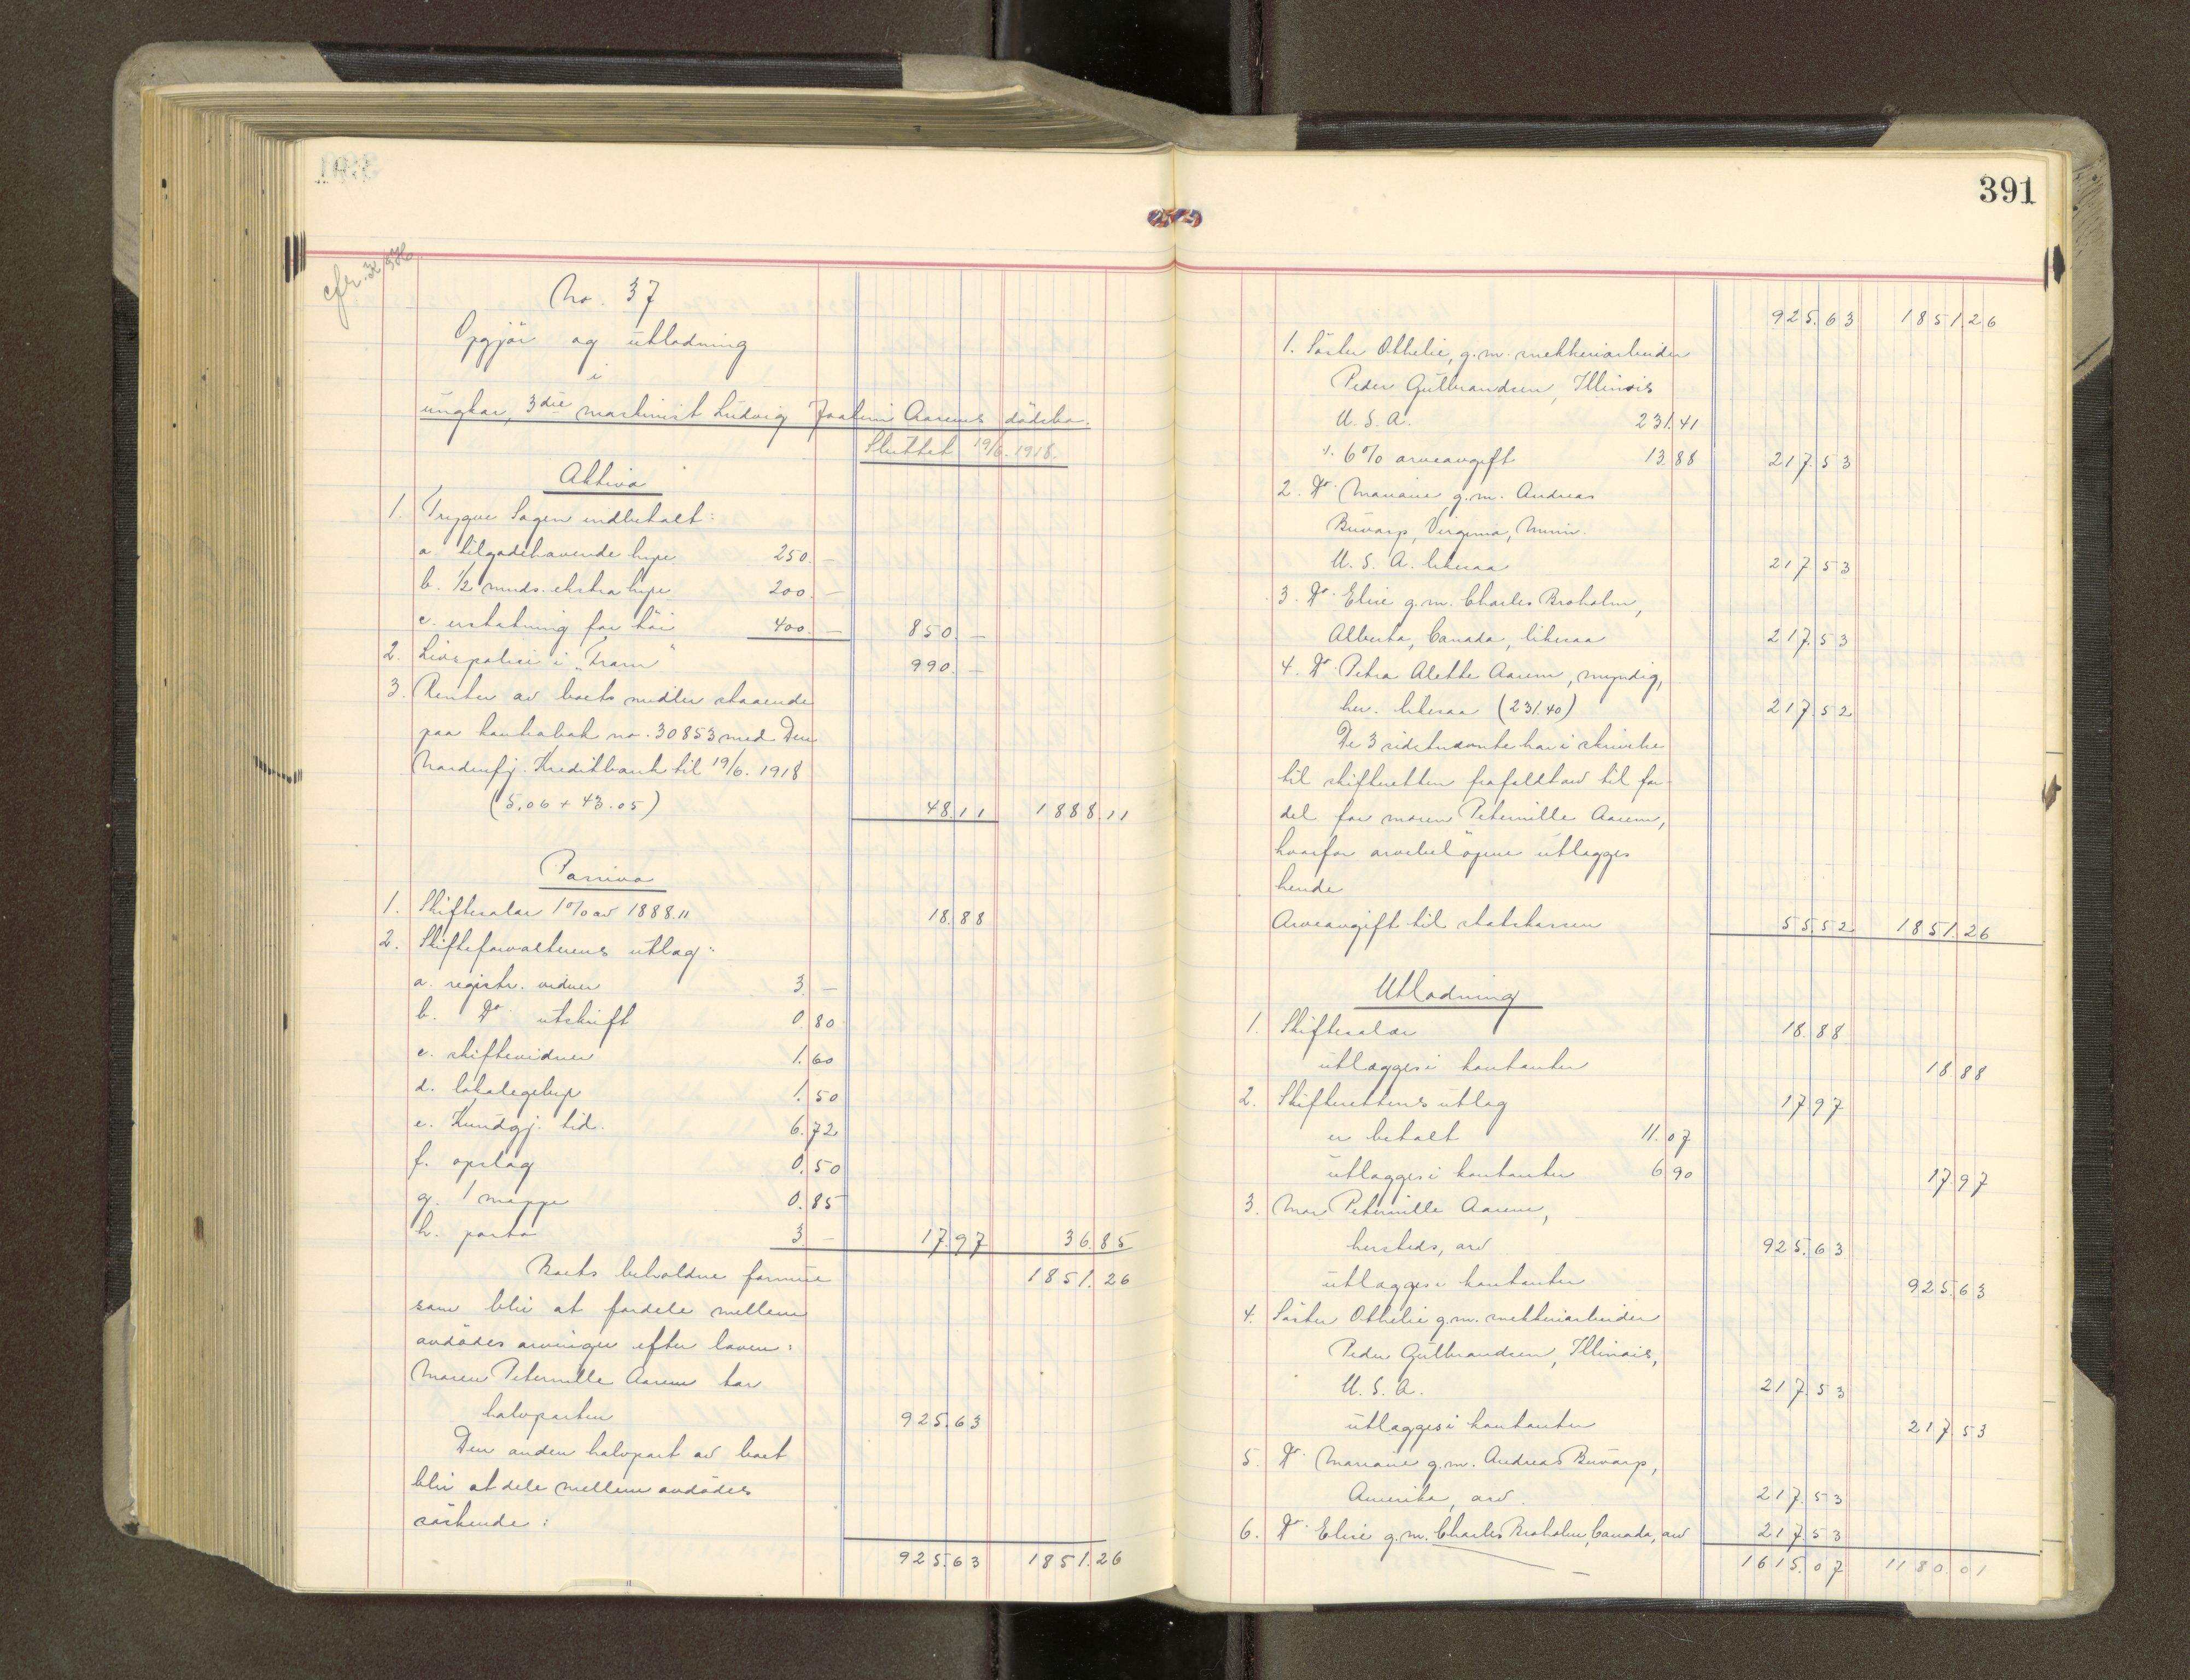 No. 37
Opgjör og utlodning
i
ungkar, 3die maskinist Ludvig Joakim Aarems dödsbo.
Sluttet 19/6. 1918.
Aktiva
1. Trygve Sagen indbetalt:
a. tilgodehavende hyre 250.—
b. 1/2 mnds. ekstra hyre 200.—
c. erstatning for töi 400.— 850.—
2. Livspolise i "Fram" 990.—
3. Renter av boets midler staaende
paa kontrabok no. 30853 med Den
Nordenfj. Kreditbank til 19/6. 1918
(5.06 + 43.05) 48.11 1888.11
Passiva
1. Skiftesalær 1% av 1888.11 18.88
2. Skifteforvalterens utlæg:
a. registr. vidner 3.—
b. Do utskrift 0.80
c. skiftevidner 1.60
d. lokalegebyr 1.50
e. Kundgj. tid. 6.72
f. opslag 0.50
g. 1 mappe 0.85
h. porto 3.— 17.97 36.85
Boets beholdne formue 1851.26
som blir at fordele mellem
avdödes arvinger efter loven:
Moren Peternille Aarem tar
halvparten 925.63
Den anden halvpart av boet
blir at dele mellem avdödes
söskende:
925.63 1851.26
391
925.63 1851.26
1. Söster Othelie, g.m. mekkeriarbeider
Peder Gulbrandsen, Illinois
U.S.A. 231.41
÷ 6% arveavgift 13.88 217.53
2. Do Mariane g.m. Andreas
Buvarp, Virginia, Minn.
U.S.A. likesaa 217.53
3. Do Elise g.m. Charles Broholm,
Alberta, Canada, likesaa 217.53
4. Do Petra Alette Aarem, myndig,
her. likesaa (231.40) 217.52
De 3 sidstnævnte har i skrivelse
til skifteretten frafaldt arv til for-
del for moren Peternille Aarem,
hvorfor arvebelöpene utlægges
hende
Arveavgift til statskassen 55.52 1851.26
Utlodning
1. Skiftesalær 18.88
utlægges i kontanter 18.88
2. Skifterettens utlæg 17.97
er betalt 11.07
utlægges i kontanter 6.90 17.97
3. Mor Peternille Aarem,
hersteds, arv 925.63
utlægges i kontanter 925.63
4. Söster Othelie g.m. mekkeriarbeider
Peder Gulbrandsen, Illinois,
U.S.A. 217.53
utlægges i kontanter 217.53
5. Do Mariane g.m. Andreas Buvarp,
Amerika, arv. 217.53
6. Do Elise g.m. Charles Broholm, Canada, arv 217.53
1615.07 1180.01